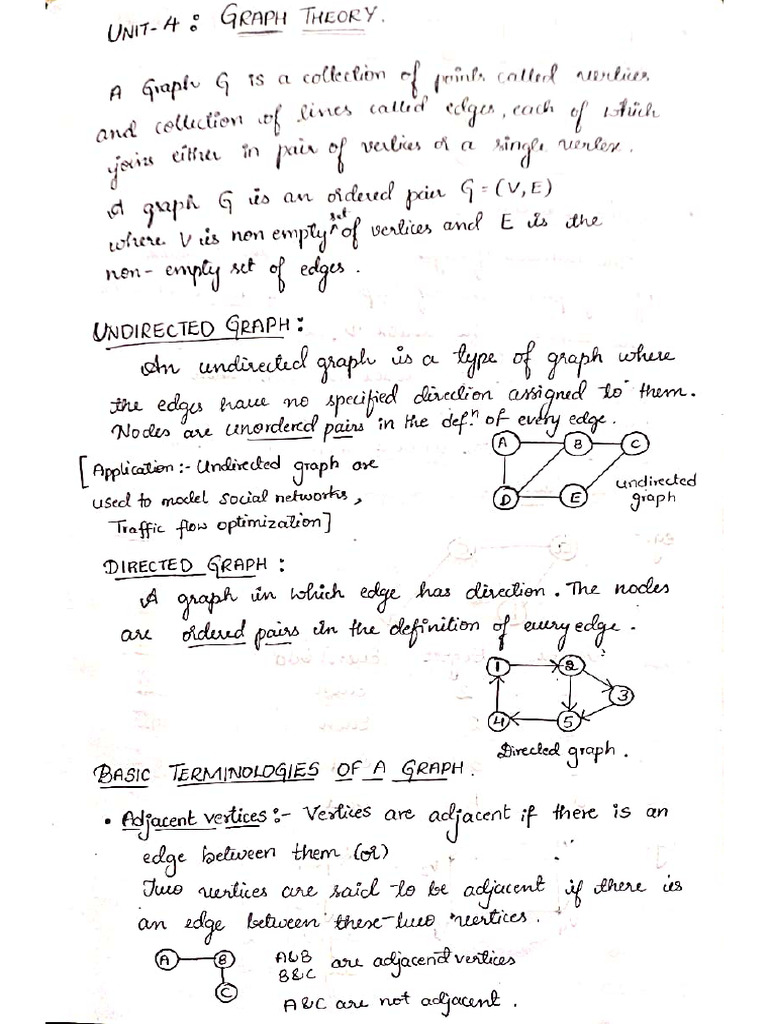 UNIT-4: GRAPH THEORY.
A Graph G is a collection of points called vertices
and collection of lines called edges, each of which
joins either in pair of vertices or a single vertex.
A graph G is an ordered pair G = (V, E)
where V is non empty set of vertices and E is the
non-empty set of edges.
UNDIRECTED GRAPH:
An undirected graph is a type of graph where
the edges have no specified direction assigned to them.
Nodes are unordered pairs in the defⁿ. of every edge.
[Application:- Undirected graph are
used to model social networks,
Traffic flow optimization]
A B C
D E
undirected
graph
DIRECTED GRAPH:
A graph in which edge has direction. The nodes
are ordered pairs in the definition of every edge.
1 2
3
4 5
Directed graph.
BASIC TERMINOLOGIES OF A GRAPH.
• Adjacent vertices:- Vertices are adjacent if there is an
edge between them (or)
Two vertices are said to be adjacent if there is
an edge between these two vertices.
A B
C
A&B
B&C are adjacend vertices
A&C are not adjacent.